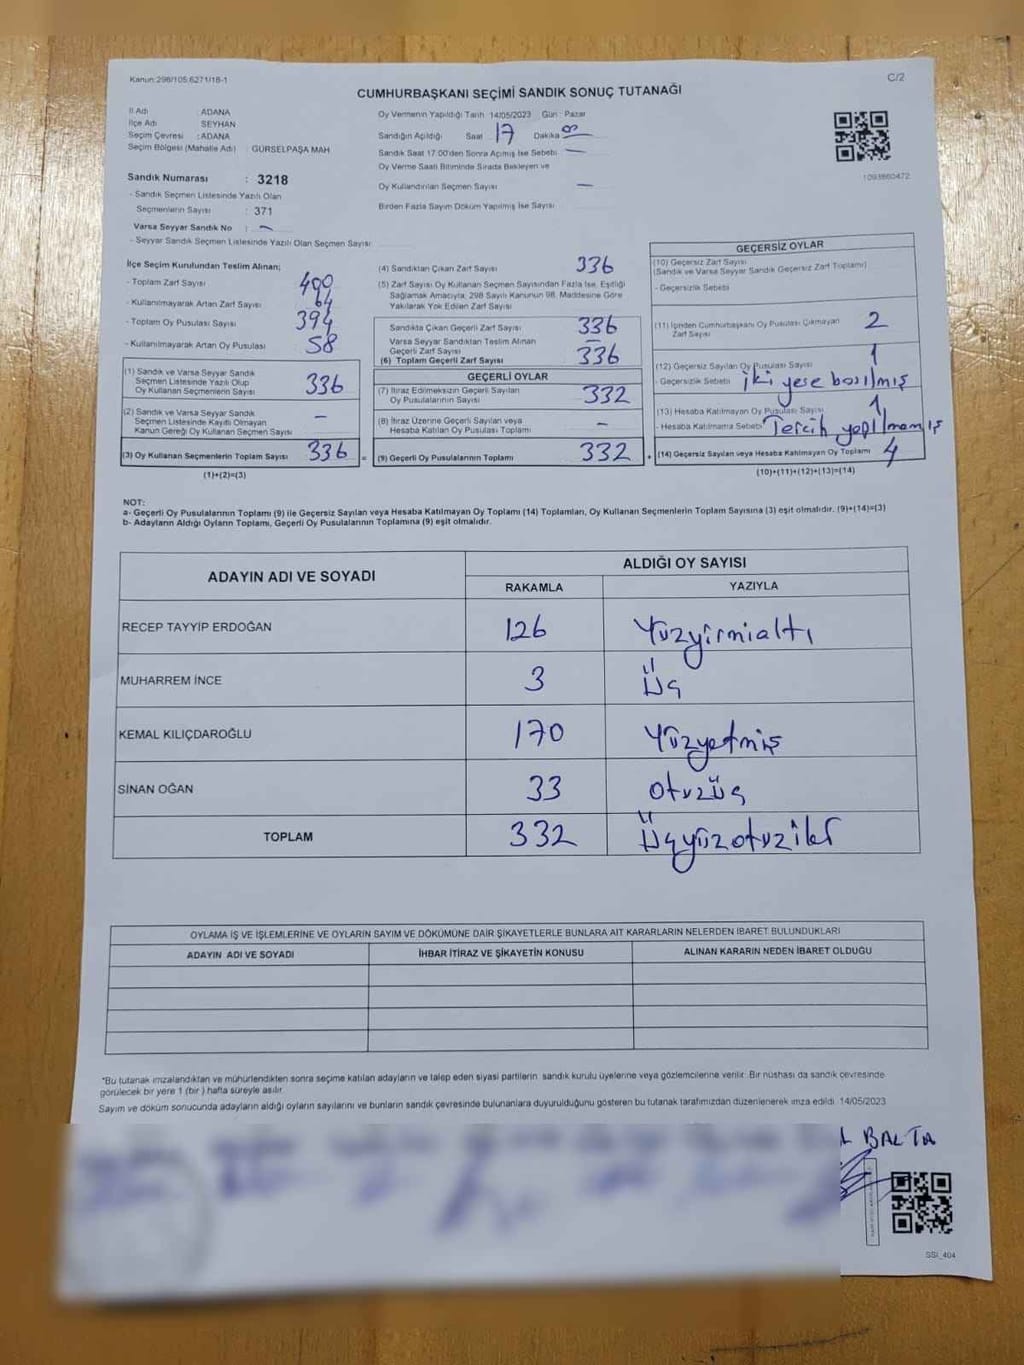 Kanun:298/105;6271/18-1
C/2
CUMHURBAŞKANI SEÇİMİ SANDIK SONUÇ TUTANAĞI
İl Adı ADANA
İlçe Adı SEYHAN
Seçim Çevresi : ADANA
Seçim Bölgesi (Mahalle Adı) : GÜRSELPAŞA MAH.
Sandık Numarası : 3218
- Sandık Seçmen Listesinde Yazılı Olan
Seçmenlerin Sayısı : 371
Varsa Seyyar Sandık No : -
- Seyyar Sandık Seçmen Listesinde Yazılı Olan Seçmen Sayısı:
Oy Vermenin Yapıldığı Tarih 14/05/2023 Gün : Pazar
Sandığın Açıldığı Saat 17 Dakika
Sandık Saat 17:00'den Sonra Açılmış İse Sebebi -
Oy Verme Saati Bitiminde Sırada Bekleyen ve
Oy Kullandırılan Seçmen Sayısı -
Birden Fazla Sayım Döküm Yapılmış İse Sayısı
1093860472
İlçe Seçim Kurulundan Teslim Alınan;
- Toplam Zarf Sayısı 400
- Kullanılmayarak Artan Zarf Sayısı 64
- Toplam Oy Pusulası Sayısı 394
- Kullanılmayarak Artan Oy Pusulası 58
(1) Sandık ve Varsa Seyyar Sandık
Seçmen Listesinde Yazılı Olup
Oy Kullanan Seçmenlerin Sayısı 336
(2) Sandık ve Varsa Seyyar Sandık
Seçmen Listesinde Kayıtlı Olmayan
Kanun Gereği Oy Kullanan Seçmen Sayısı -
(3) Oy Kullanan Seçmenlerin Toplam Sayısı 336 =
(1)+(2)=(3)
(4) Sandıktan Çıkan Zarf Sayısı 336
(5) Zarf Sayısı Oy Kullanan Seçmen Sayısından Fazla İse, Eşitliği
Sağlamak Amacıyla, 298 Sayılı Kanunun 98. Maddesine Göre
Yakılarak Yok Edilen Zarf Sayısı
Sandıkta Çıkan Geçerli Zarf Sayısı 336
Varsa Seyyar Sandıktan Teslim Alınan
Geçerli Zarf Sayısı -
(6) Toplam Geçerli Zarf Sayısı 336
GEÇERLİ OYLAR
(7) İtiraz Edilmeksizin Geçerli Sayılan
Oy Pusulalarının Sayısı 332
(8) İtiraz Üzerine Geçerli Sayılan veya
Hesaba Katılan Oy Pusulası Toplamı -
(9) Geçerli Oy Pusulalarının Toplamı 332 +
GEÇERSİZ OYLAR
(10) Geçersiz Zarf Sayısı
(Sandık ve Varsa Seyyar Sandık Geçersiz Zarf Toplamı)
- Geçersizlik Sebebi
(11) İçinden Cumhurbaşkanı Oy Pusulası Çıkmayan
Zarf Sayısı 2
(12) Geçersiz Sayılan Oy Pusulası Sayısı 1
- Geçersizlik Sebebi iki yere basılmış
(13) Hesaba Katılmayan Oy Pusulası Sayısı 1
- Hesaba Katılmama Sebebi Tercih yapılmamış
(14) Geçersiz Sayılan veya Hesaba Katılmayan Oy Toplamı 4
(10)+(11)+(12)+(13)=(14)
NOT:
a- Geçerli Oy Pusulalarının Toplamı (9) ile Geçersiz Sayılan veya Hesaba Katılmayan Oy Toplamı (14) Toplamları, Oy Kullanan Seçmenlerin Toplam Sayısına (3) eşit olmalıdır. (9)+(14)=(3)
b- Adayların Aldığı Oyların Toplamı, Geçerli Oy Pusulalarının Toplamına (9) eşit olmalıdır.
ADAYIN ADI VE SOYADI
ALDIĞI OY SAYISI
RAKAMLA YAZIYLA
RECEP TAYYİP ERDOĞAN 126 Yüzyirmialtı
MUHARREM İNCE 3 Üç
KEMAL KILIÇDAROĞLU 170 Yüzyetmiş
SİNAN OĞAN 33 otuzüç
TOPLAM 332 Üçyüzotuziki
OYLAMA İŞ VE İŞLEMLERİNE VE OYLARIN SAYIM VE DÖKÜMÜNE DAİR ŞİKAYETLERLE BUNLARA AİT KARARLARIN NELERDEN İBARET BULUNDUKLARI
ADAYIN ADI VE SOYADI İHBAR İTİRAZ VE ŞİKAYETİN KONUSU ALINAN KARARIN NEDEN İBARET OLDUĞU
*Bu tutanak imzalandıktan ve mühürlendikten sonra seçime katılan adayların ve talep eden siyasi partilerin sandık kurulu üyelerine veya gözlemcilerine verilir. Bir nüshası da sandık çevresinde
görülecek bir yere 1 (bir ) hafta süreyle asılır.
Sayım ve döküm sonucunda adayların aldığı oyların sayılarını ve bunların sandık çevresinde bulunanlara duyurulduğunu gösteren bu tutanak tarafımızdan düzenlenerek imza edildi. 14/05/2023
BALTA
SSI_404